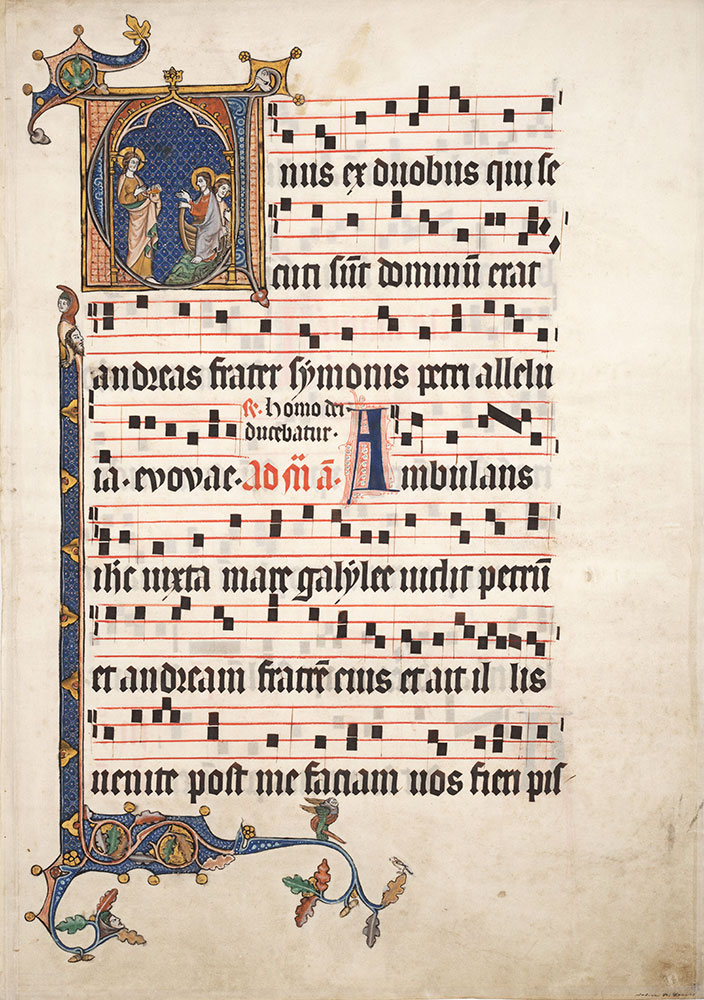 Unus ex duobus qui se
cuti sūt dominū erat
andreas frater symonis petri allelu
R. homo dei
ducebatur.
ia. evovae. Ad m̄ ā. Ambulans
ihc iuxta mare galylee vidit petrū
et andream fratrē eius et ait il lis
uenite post me faciam uos fieri pis